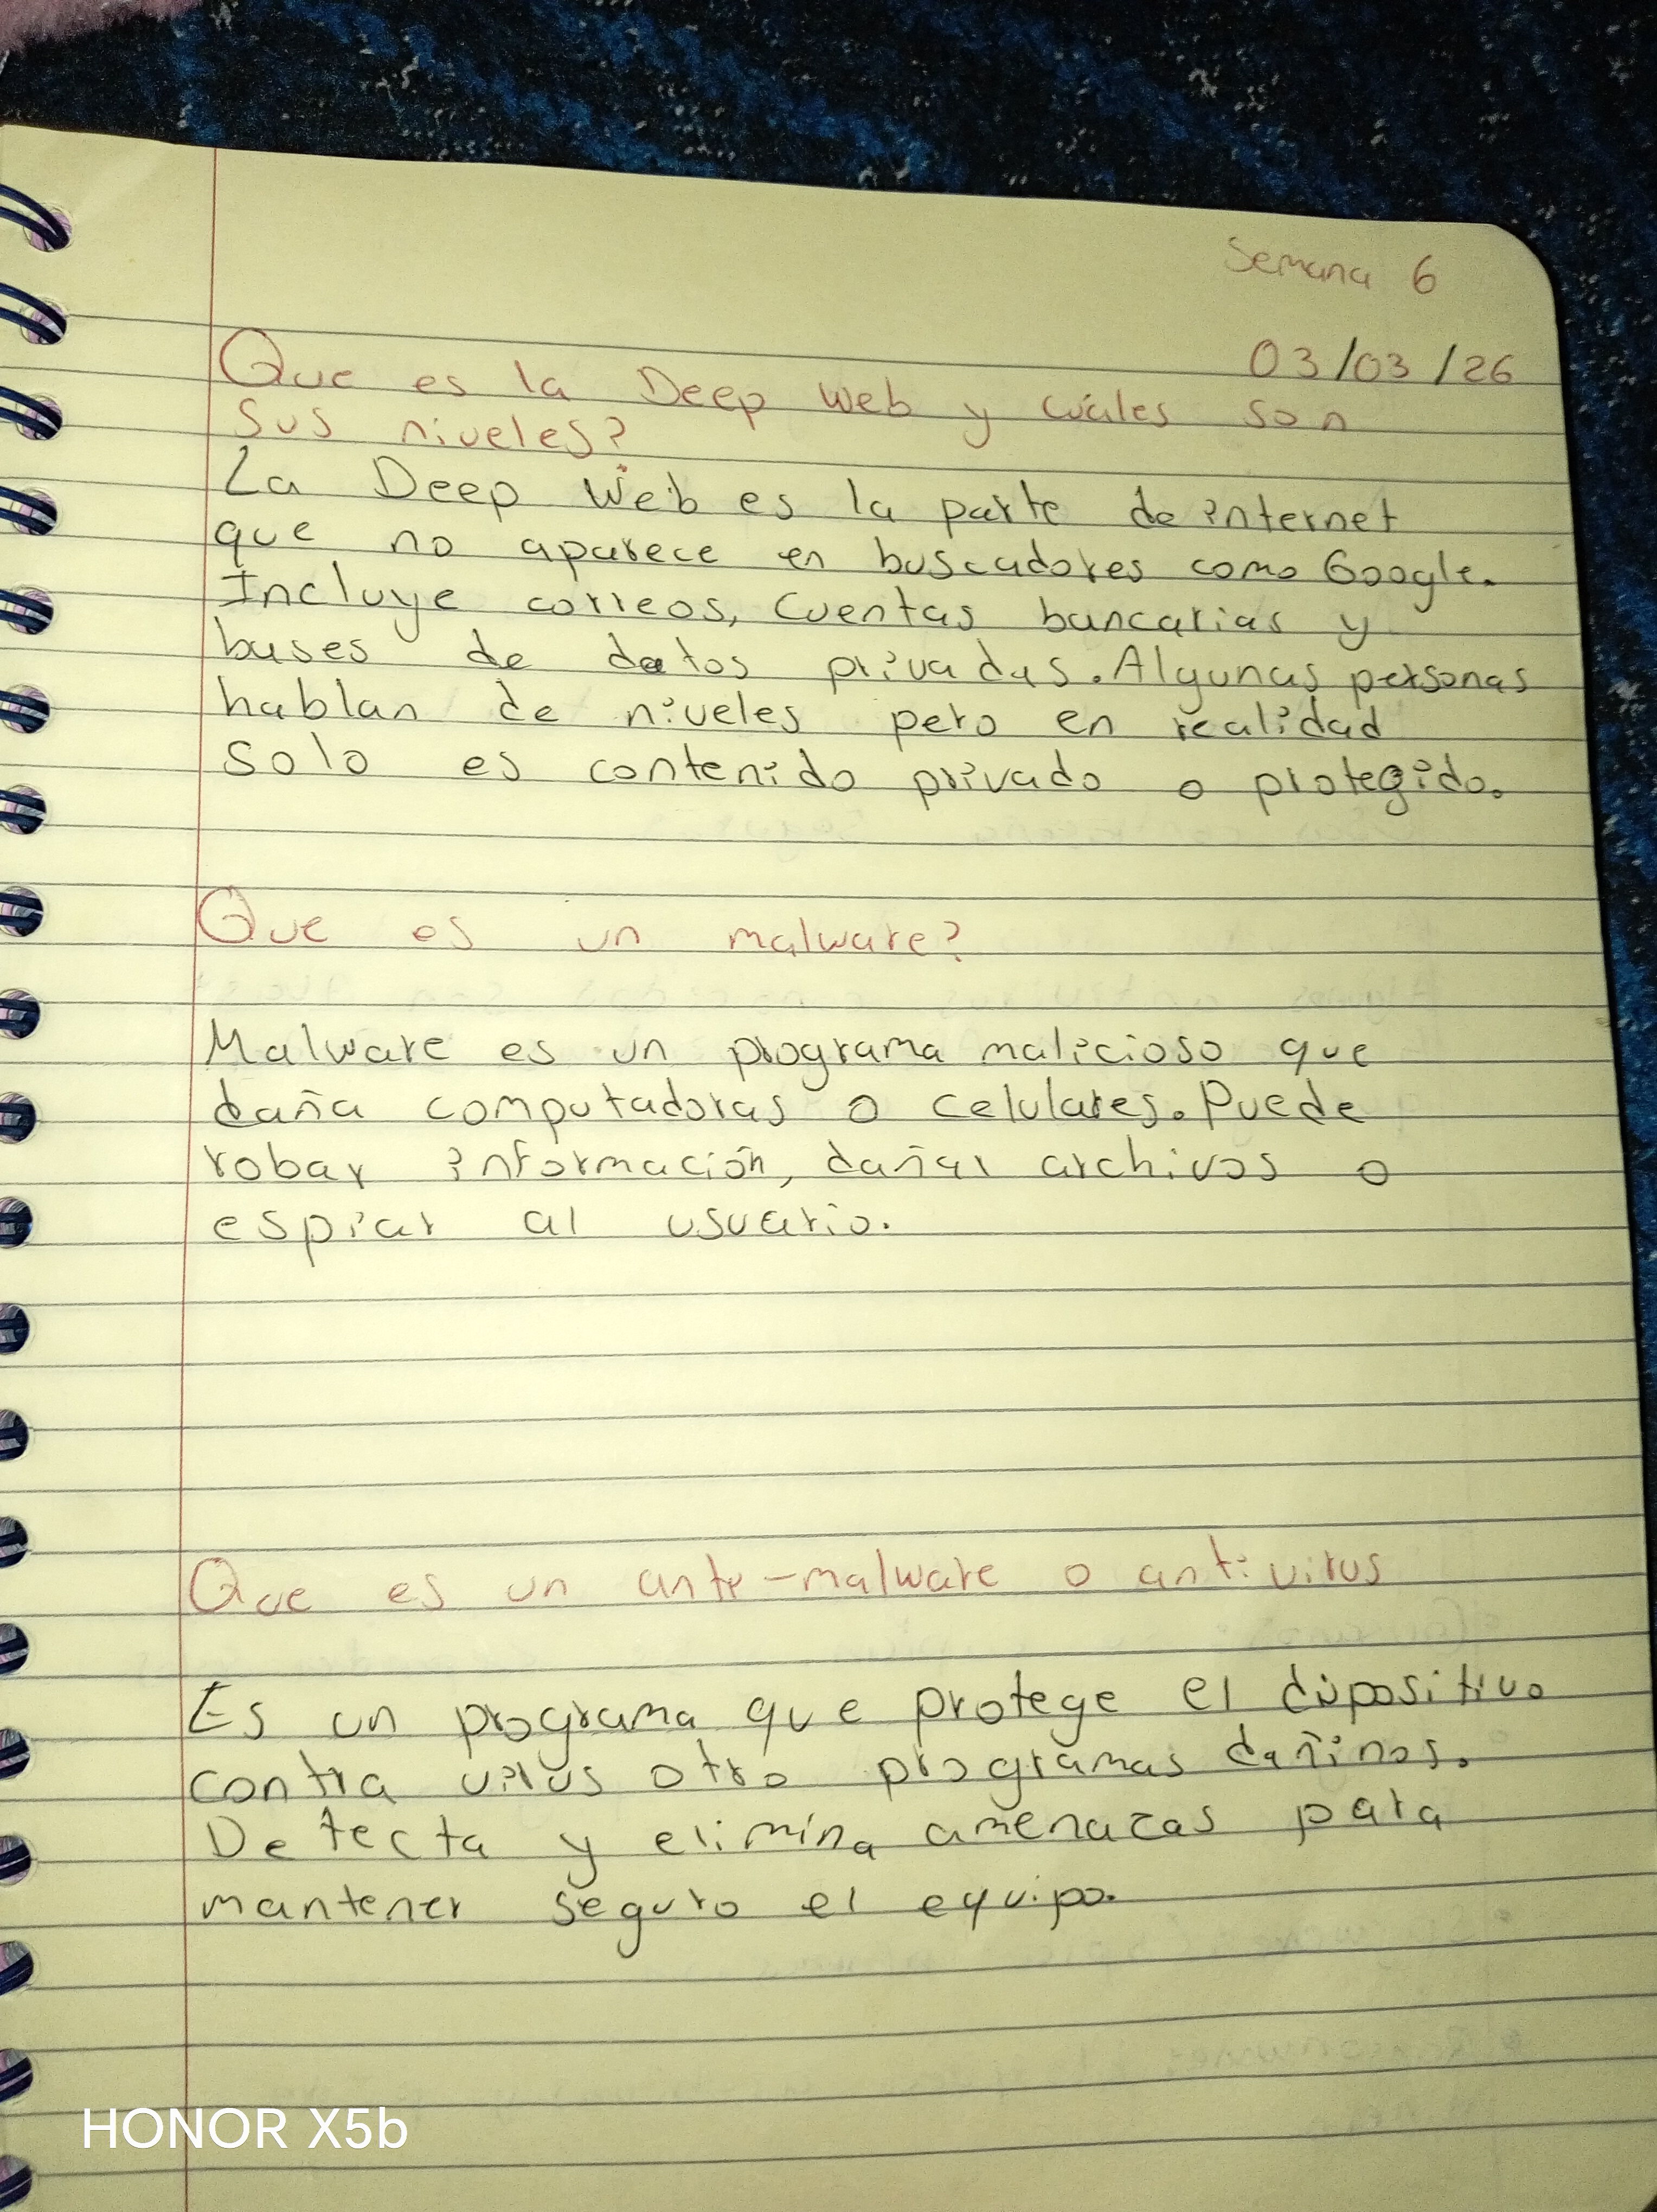 Semana 6
03/03/26
Que es la Deep Web y cuáles son
sus niveles?
La Deep Web es la parte de internet
que no aparece en buscadores como Google.
Incluye correos, cuentas bancarias y
bases de datos privadas. Algunas personas
hablan de niveles pero en realidad
solo es contenido privado o protegido.
Que es un malware?
Malware es un programa malicioso que
daña computadoras o celulares. Puede
robar información, dañar archivos o
espiar al usuario.
Que es un anti-malware o antivirus
Es un programa que protege el dipositivo
contra virus otro programas dañinos.
Detecta y elimina amenazas para
mantener seguro el equipo.
HONOR X5b